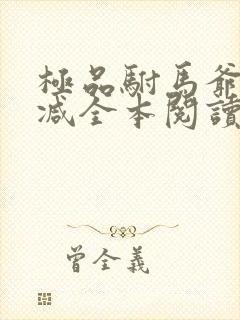 極品駙馬爺
减全本閱讀
曾全義